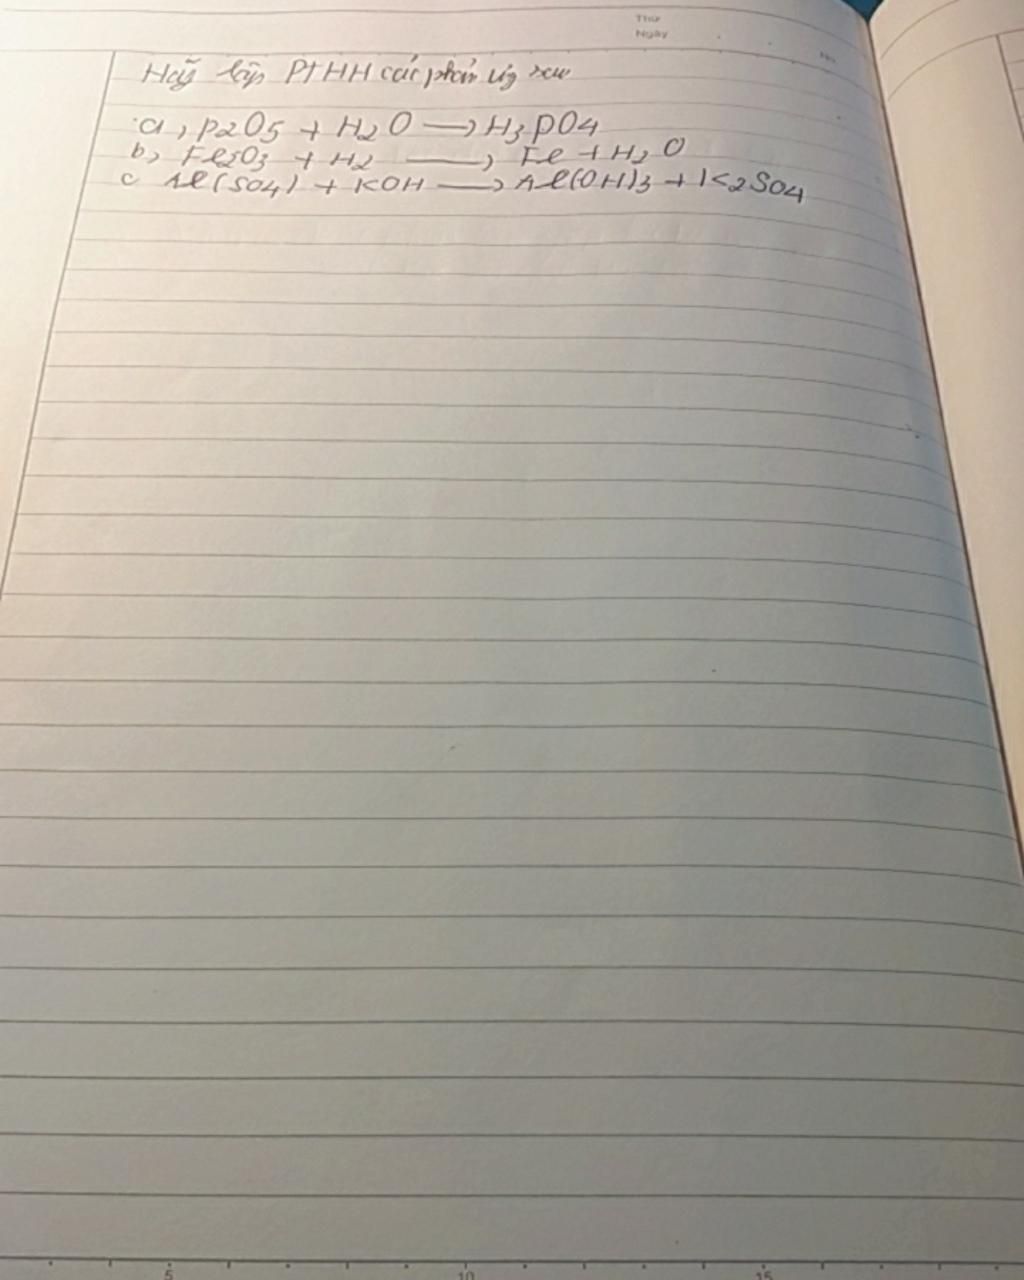 Thứ
Ngày
No.
Hãy lập PTHH các phản ứng sau
a, P2O5 + H2O → H3PO4
b, Fe2O3 + H2 → Fe + H2O
c Al(SO4) + KOH → Al(OH)3 + K2SO4
5 10 15